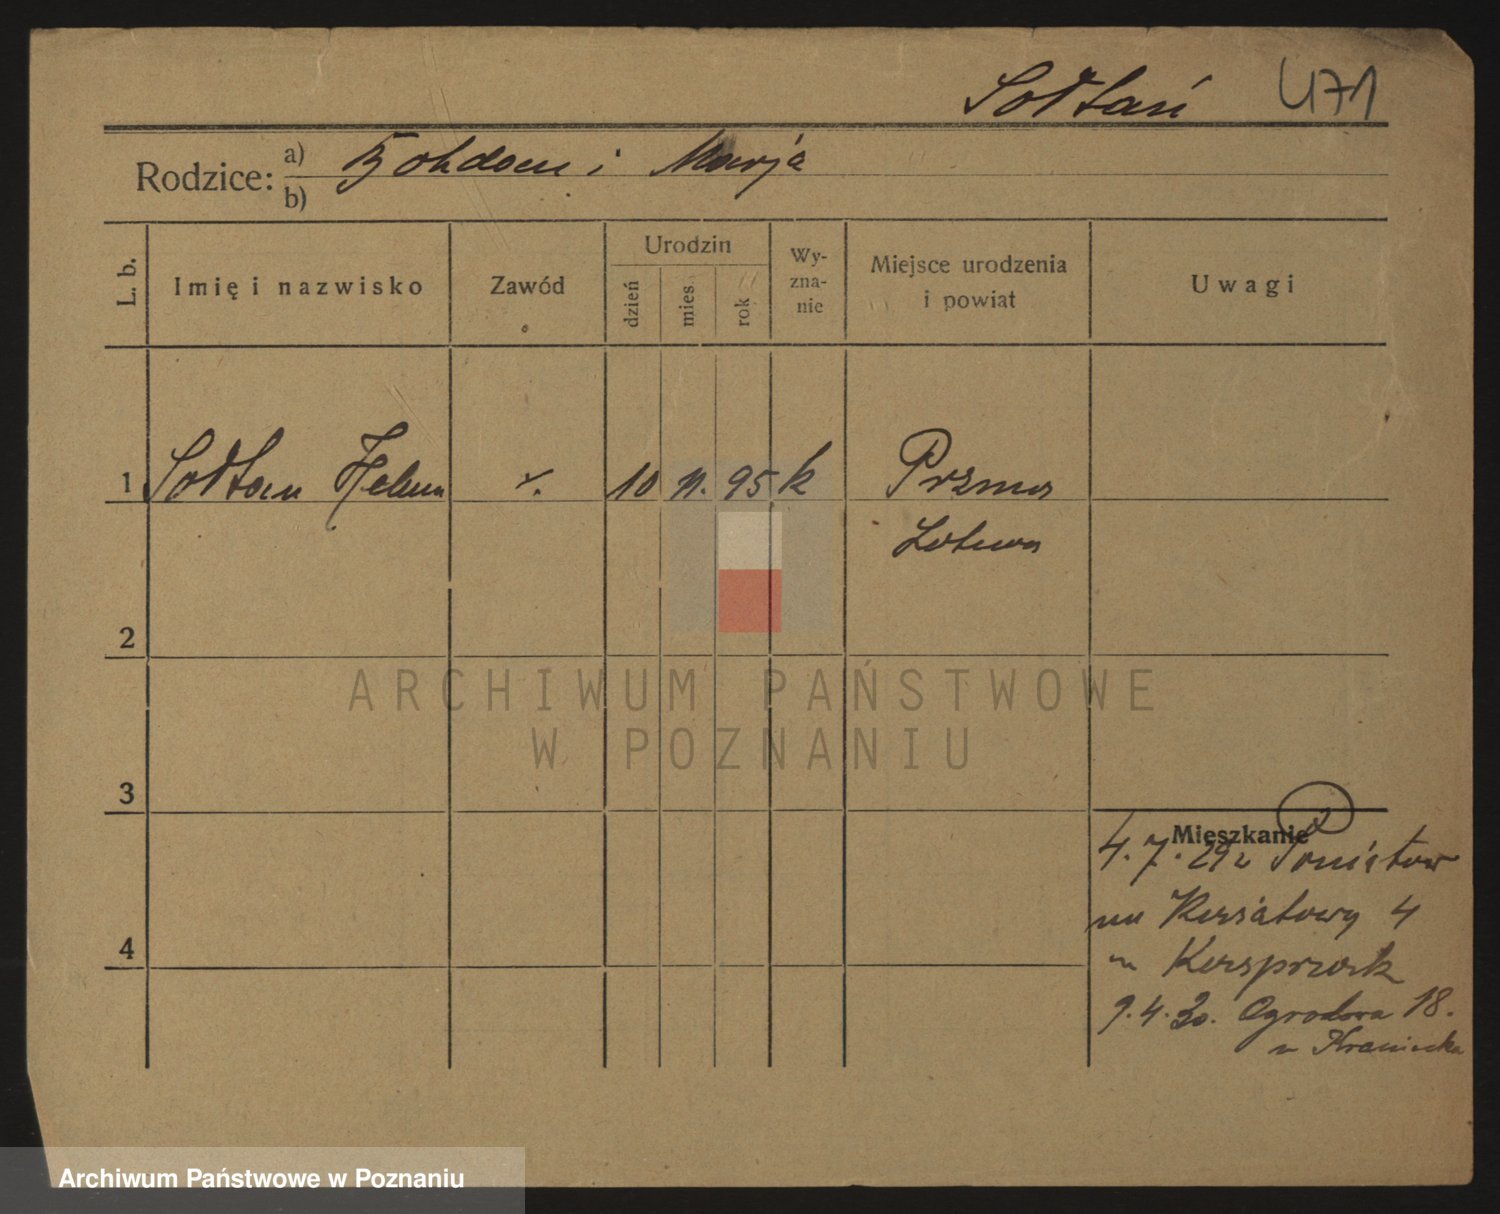 Sołtań 471
Rodzice: a) Bohdan i Marja
b)
L. b.
Imię i nazwisko
Zawód
Urodzin
dzień
mies.
rok
Wy-
zna-
nie
Miejsce urodzenia
i powiat
Uwagi
1 Sołtan Helena 10 11. 95 k Przma
Łotwa
2
3
4
Mieszkanie
4. 7. 29
4
9. 4. 30. Ogrodowa 18.
ARCHIWUM PAŃSTWOWE
W POZNANIU
Archiwum Państwowe w Poznaniu